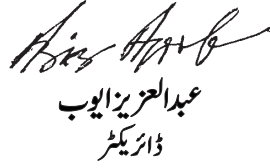 Aziz Ayub
عبدالعزیز ایوب
ڈائریکٹر